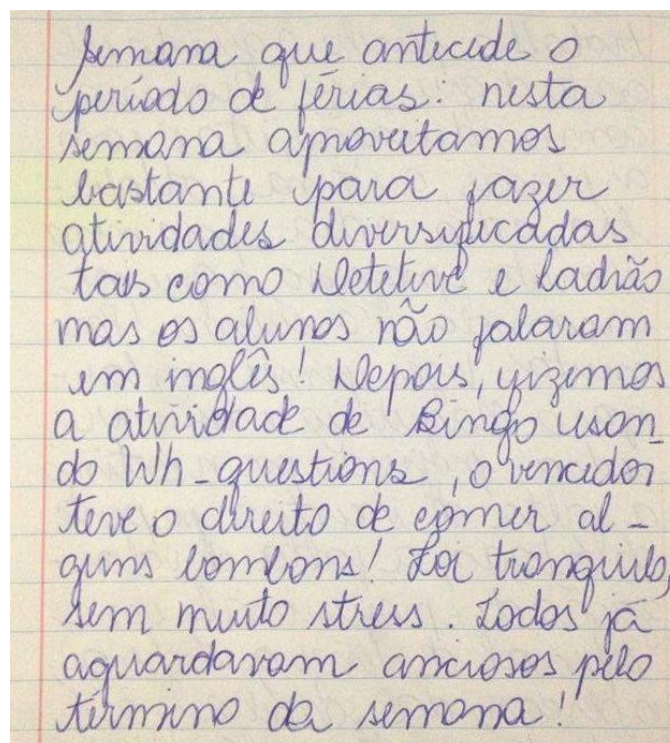 Semana que antecede o
período de férias: nesta
semana aproveitamos
bastante para fazer
atividades diversificadas
tais como Detetive e ladrão
mas os alunos não falaram
em inglês! Depois, fizemos
a atividade de Bingo usan_
do Wh-questions, o vencedor
teve o direito de comer al-
guns bombons! Foi tranquilo,
sem muito stress. Todos já
aguardavam anciosos pelo
término da semana!